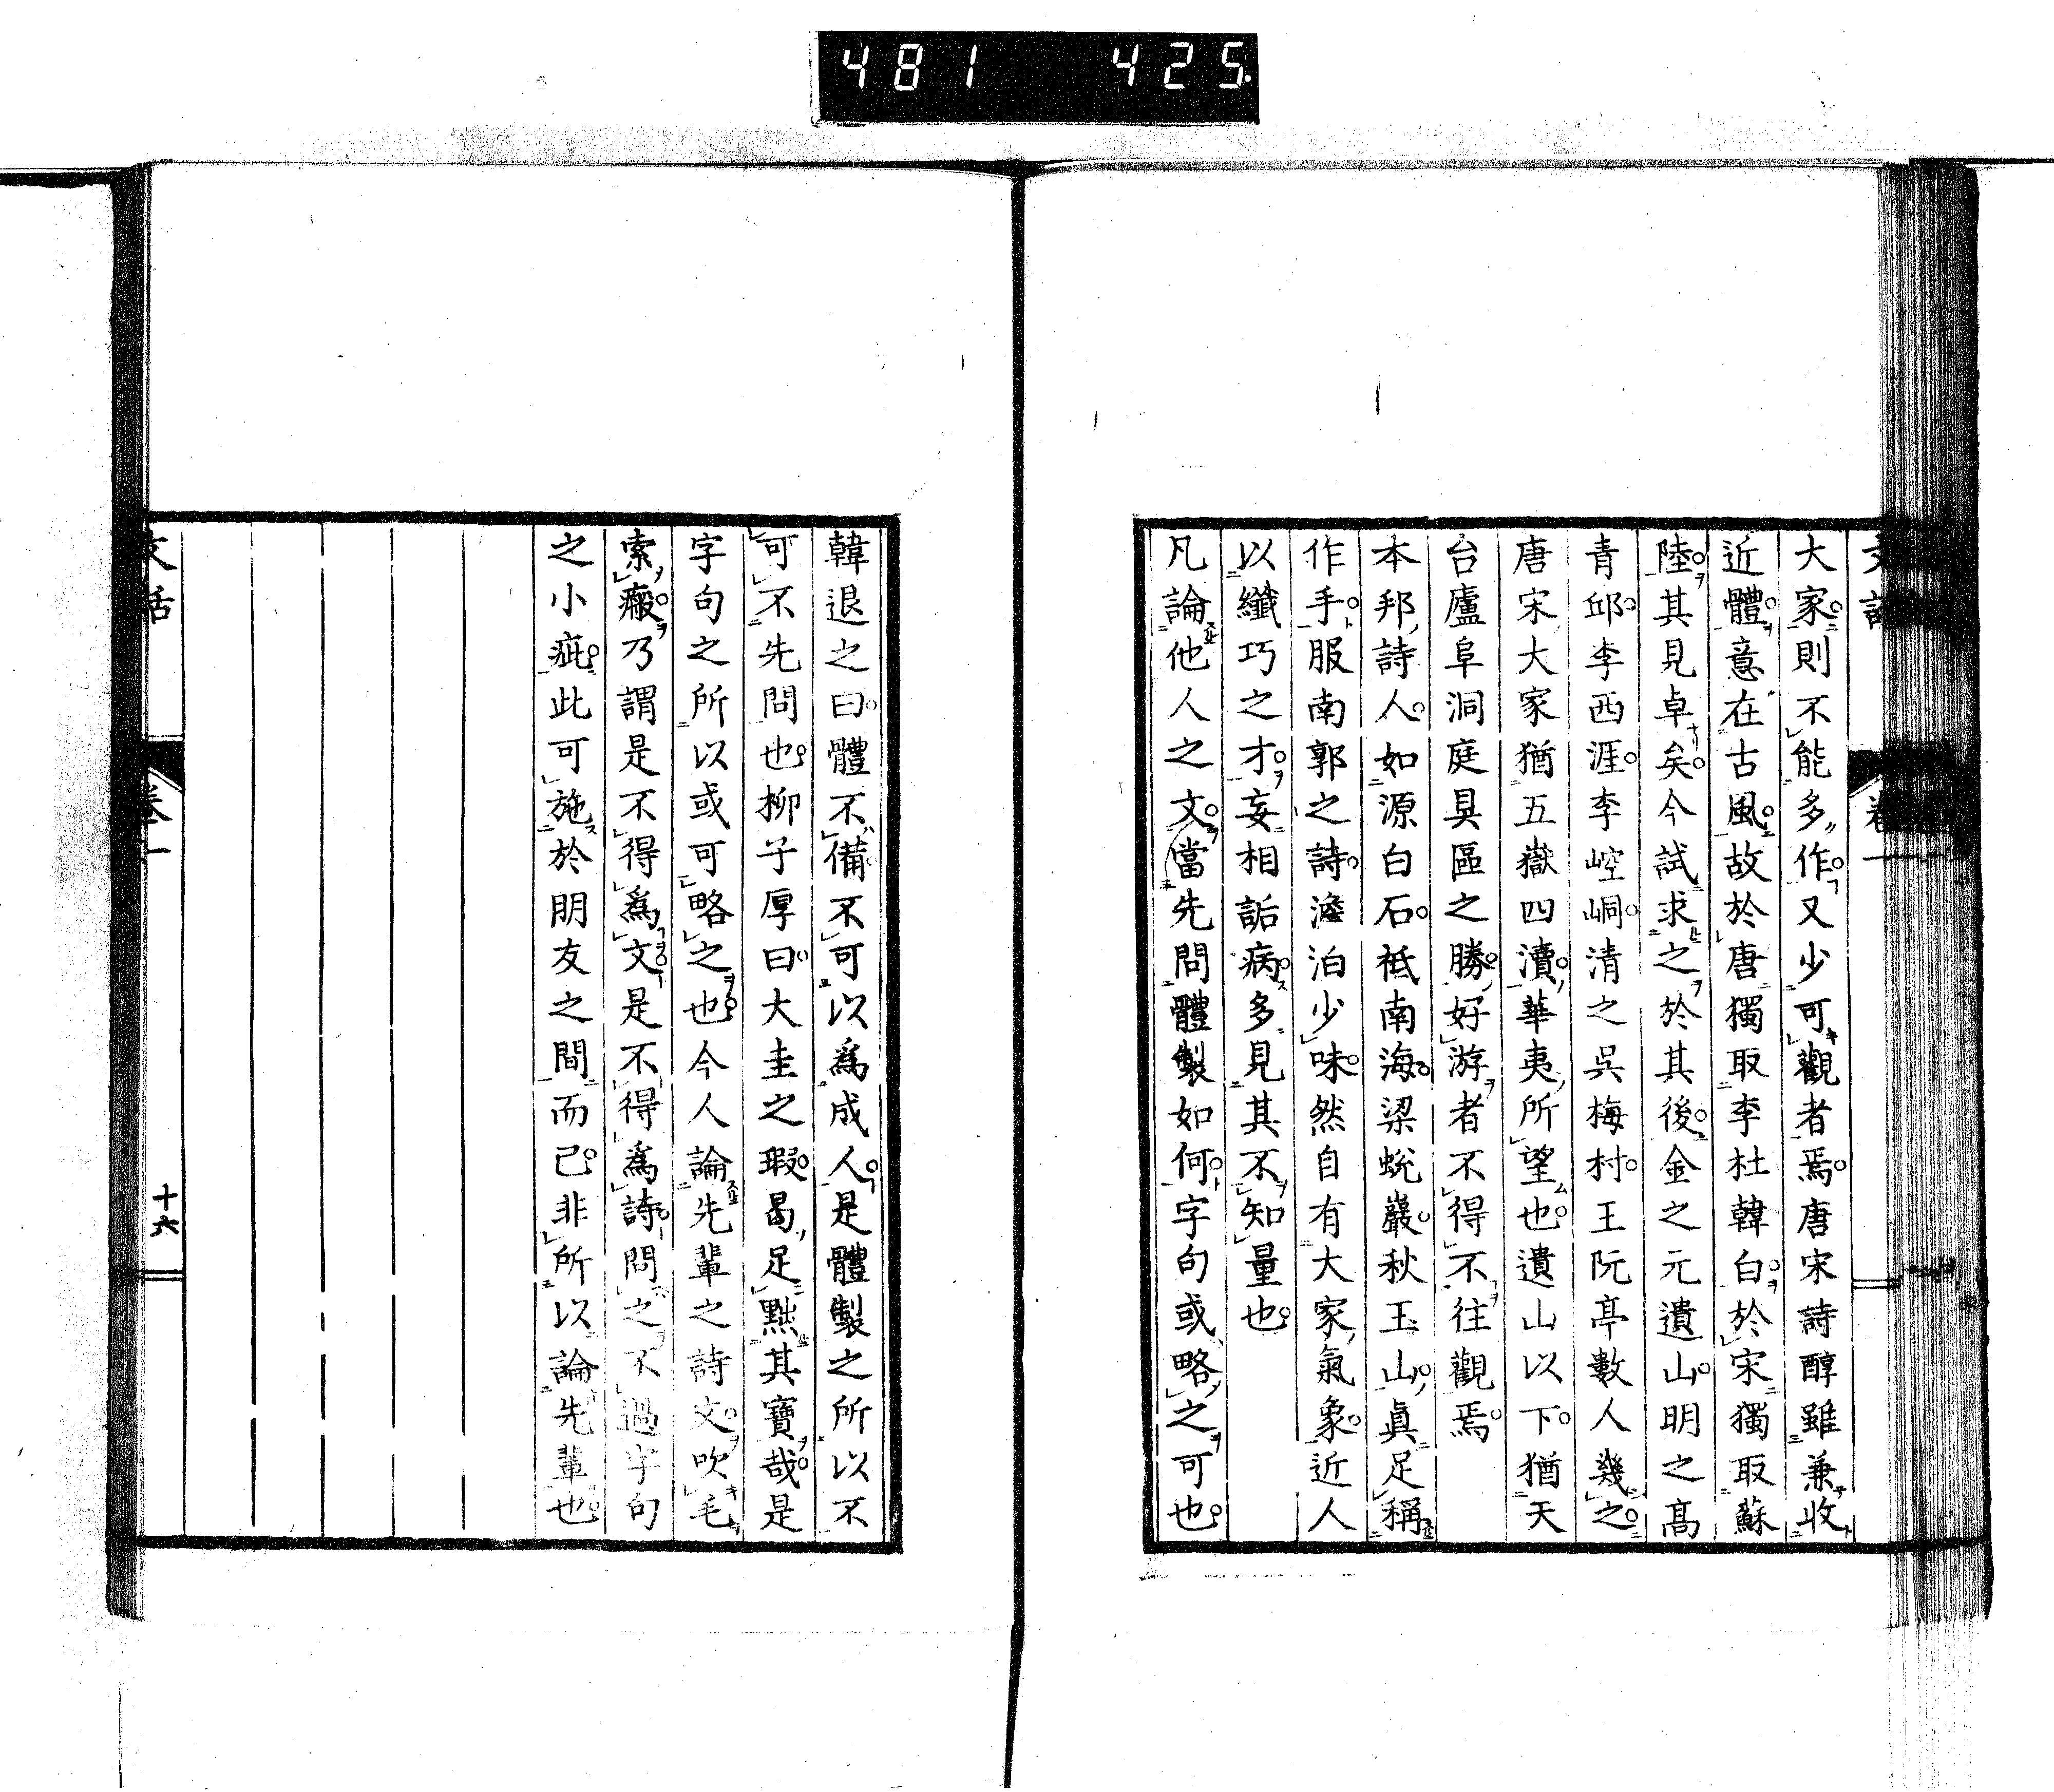 481 425
大家則不能多作又少可觀者焉唐宋詩醇雖兼收
近體意在古風故於唐獨取李杜韓白於宋獨取蘇
陸其見卓矣今試求之於其後金之元遺山明之高
青邱李西涯李崆峒清之呉梅村王阮亭數人幾之
唐宋大家猶五嶽四瀆華夷所望也遺山以下猶天
台廬阜洞庭具區之勝好游者不得不往觀焉
本邦詩人如源白石祗南海梁蛻巖秋玉山眞足稱
作手服南郭之詩澹泊少味然自有大家氣象近人
以纖巧之才妄相詬病多見其不知量也
凡論他人之文當先問體製如何字句或略之可也
韓退之曰體不備不可以爲成人是體製之所以不
可不先問也柳子厚曰大圭之瑕曷足㸃其寶哉是
字句之所以或可略之也今人論先輩之詩文吹毛
索瘢乃謂是不得爲文是不得爲詩問之不過字句
之小疵此可施於朋友之間而已非所以論先輩也
文話
卷一
十六